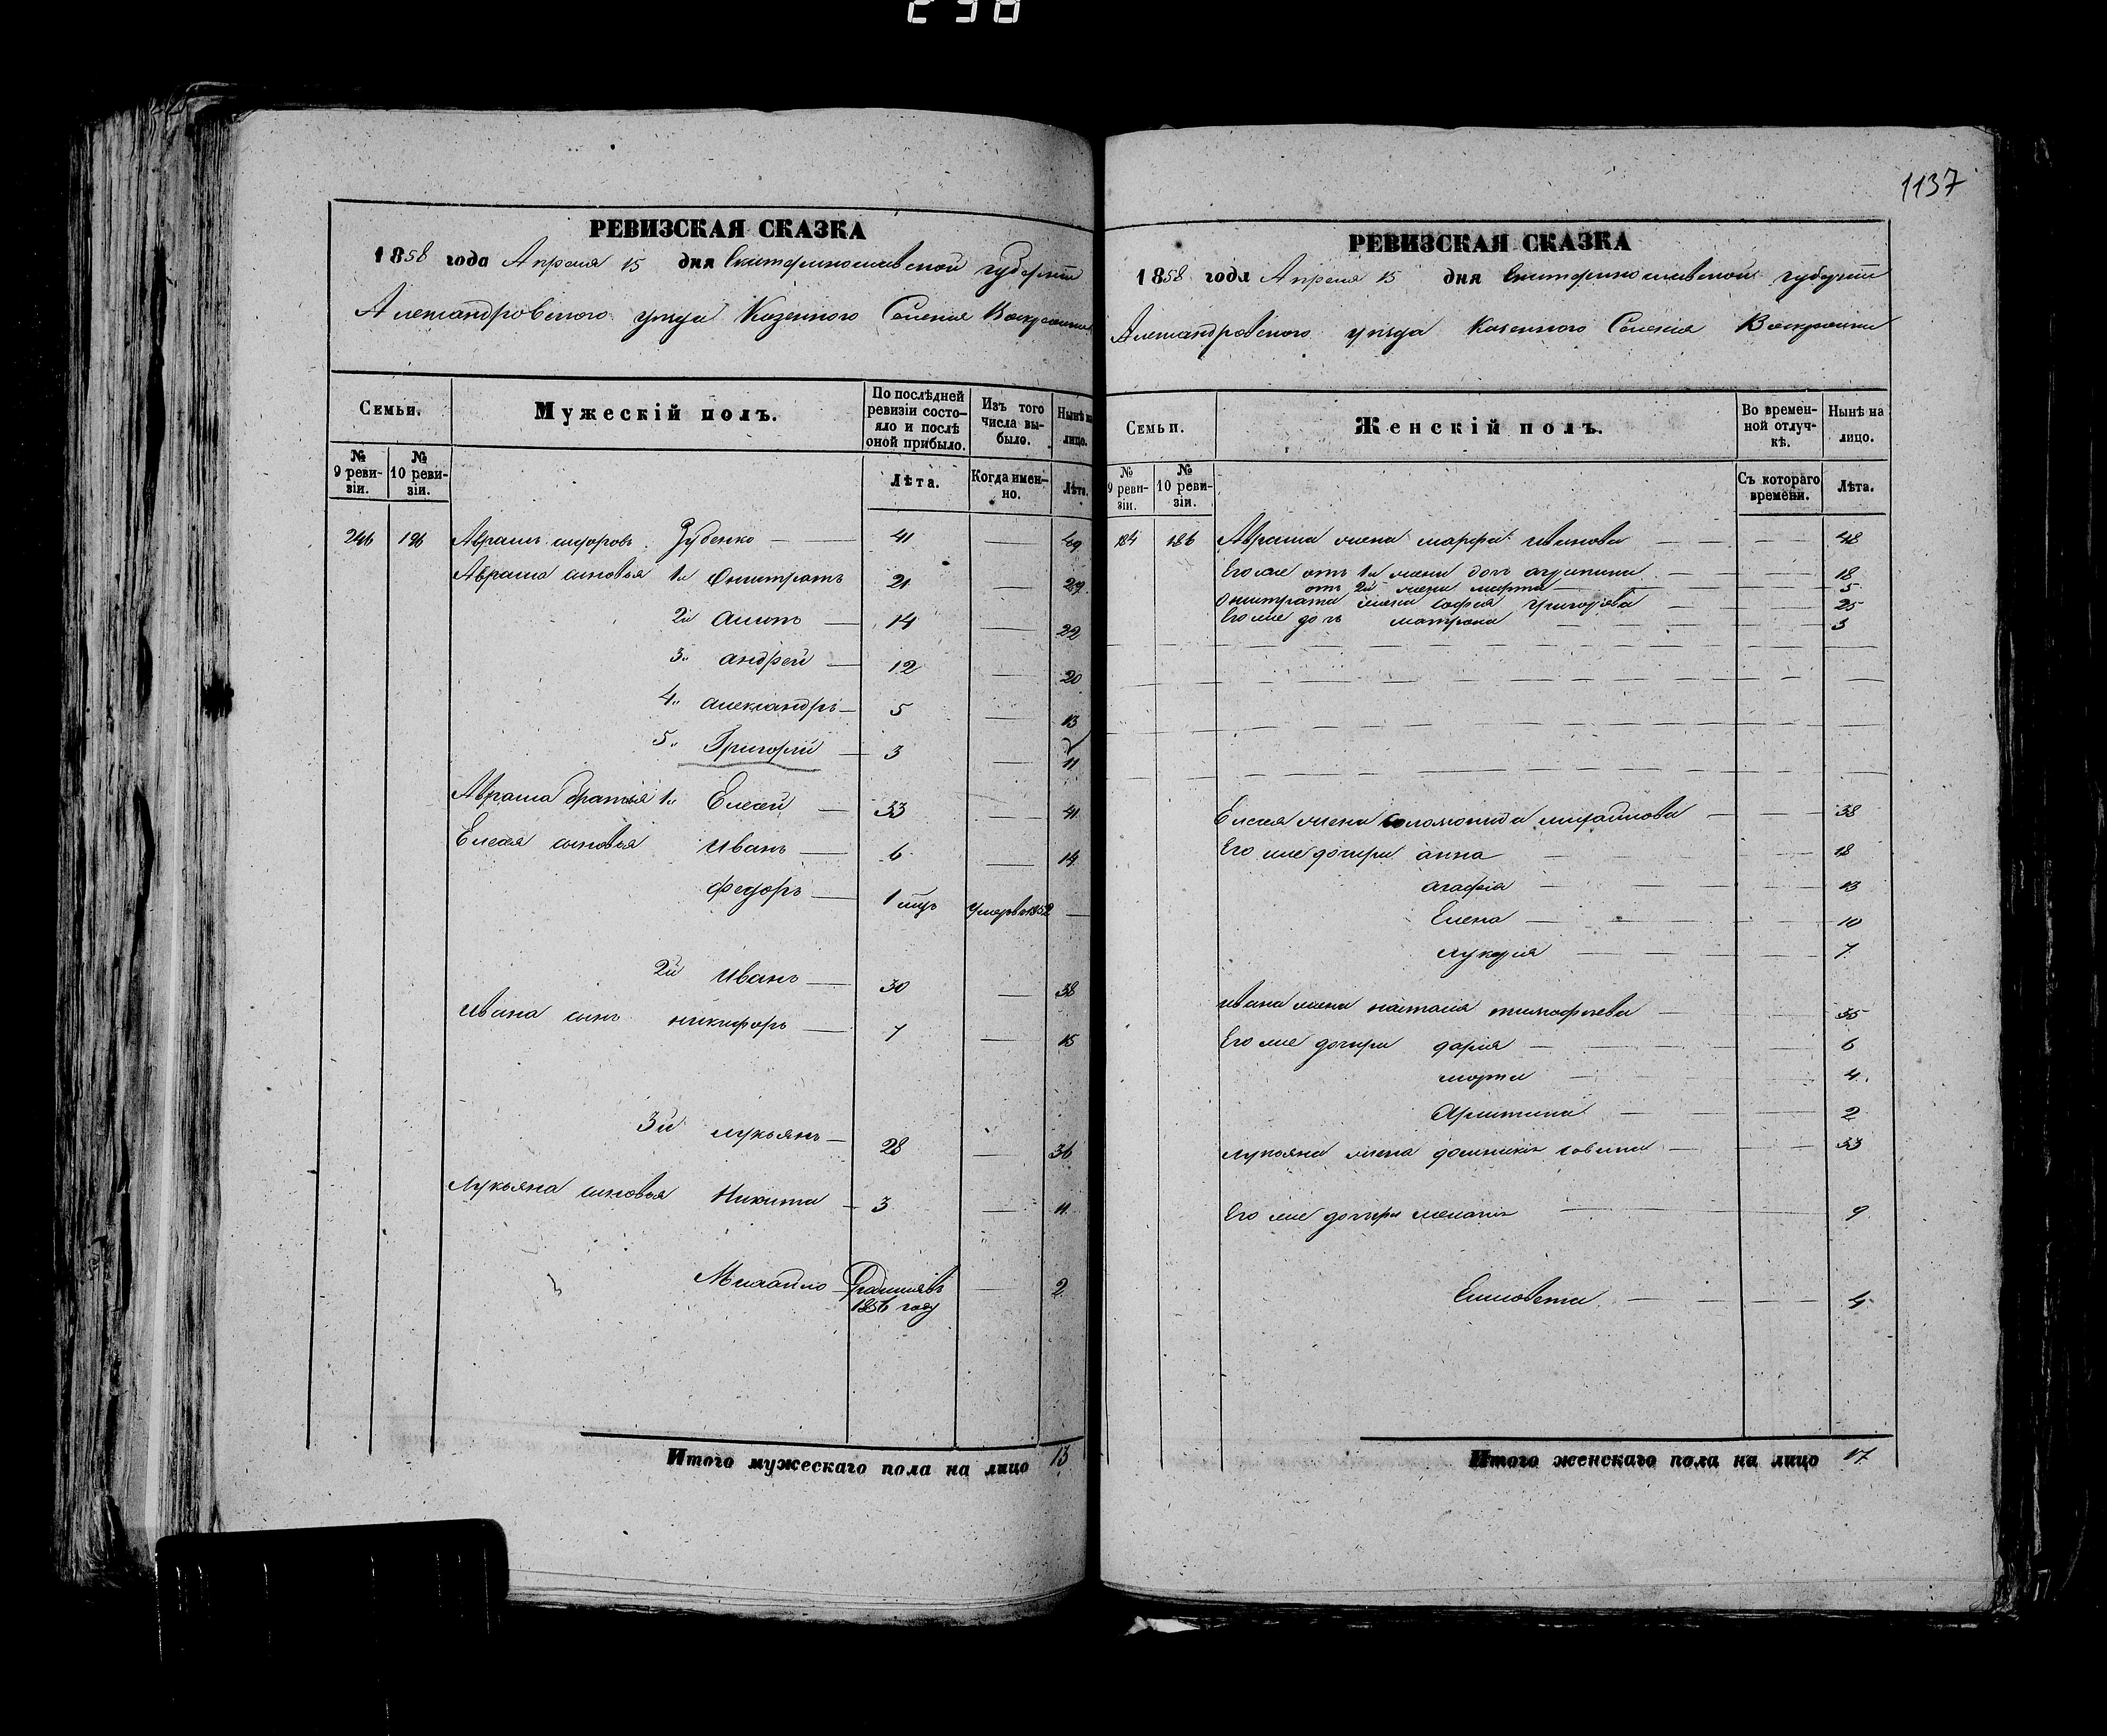 298
1137
РЕВИЗСКАЯ СКАЗКА
1858 года Апреля 15 дня Екатеринославской губернии
Александровского уезда Казенного Селения
Семьи.
Мужескій полъ.
По послѣдней ревизіи состояло и послѣ оной прибыло.
Изъ того числа выбыло.
Нынѣ на лицо.
№ 9 ревизіи.
№ 10 ревизіи.
Лѣта.
Когда именно.
Лѣта.
246 196 Аврамъ Зубенко 41 — 49
Аврама сыновья 1й 21 — 29
2й 14 — 22
3й андрей 12 — 20
4й александръ 5 — 13
5й Григорій 3 — 11
Аврама братья 1й Елесей 33 — 41
Елесея сыновья Иванъ 6 — 14
Федоръ 1 мцъ умеръ в 1852 —
2й Иванъ 30 — 38
Ивана сынъ никифоръ 7 — 15
3й лукьянъ 28 — 36
Лукьяна сыновья Никита 3 — 11
Михайло 1856 году — 2
Итого мужескаго пола на лицо 13
РЕВИЗСКАЯ СКАЗКА
1858 года Апреля 15 дня Екатеринославской губернии
Александровского уезда Казенного Селения
Семьи.
Женскій полъ.
Во временной отлучкѣ.
Нынѣ на лицо.
№ 9 ревизіи.
№ 10 ревизіи.
Съ котораго времени.
Лѣта.
Аврама жена марфа иванова — 48
Его же отъ 1й жены дочь — 18
отъ 2й жены марта — 5
жена софия григорьева — 25
Его же дочь матрона — 3
Елесея жена соломонида михайлова — 38
Его же дочери анна — 18
агафія — 13
Елена — 10
лукерія — 7
Ивана жена наталія тимофеева — 35
Его же дочери дарія — 6
марта — 4
2
Лукьяна жена домникія — 33
Его же дочери меланія — 9
Елисовета — 4
Итого женскаго пола на лицо 17